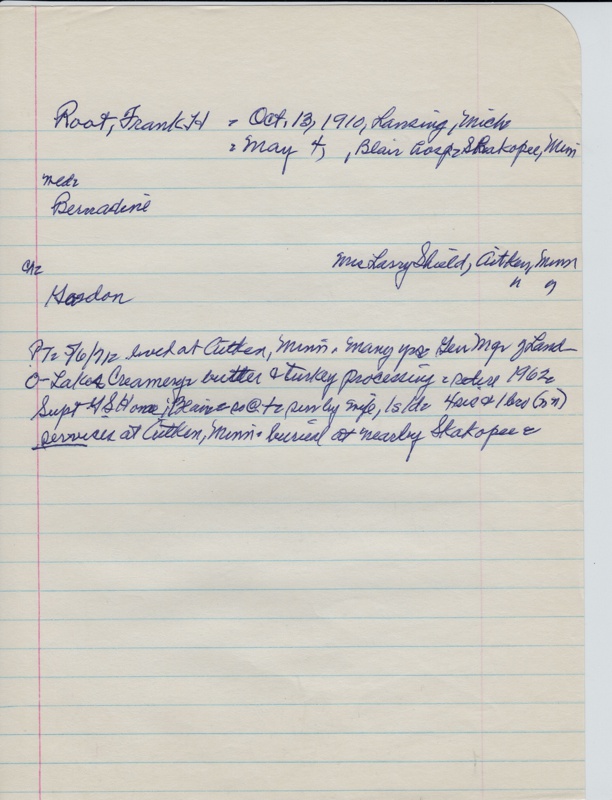 Root, Frank H = Oct. 13, 1910, Lansing, Mich
= May 4, , Blair Hosp = Shakopee, Minn
med =
Bernadine
ch =
Mrs Larry Shield, Aitken, Minn
Gordon " "
PT = 5/6/71 = lived at Aitken, Minn = many yrs = Gen Mgr of Land
O Lakes Creamery = butter & turkey processing = retire 1962 =
Supt Home, Blaine = surv by wife, 1s 1d = 4 & 1 bro (nn)
services at Aitken, Minn = burial at nearby Shakopee =